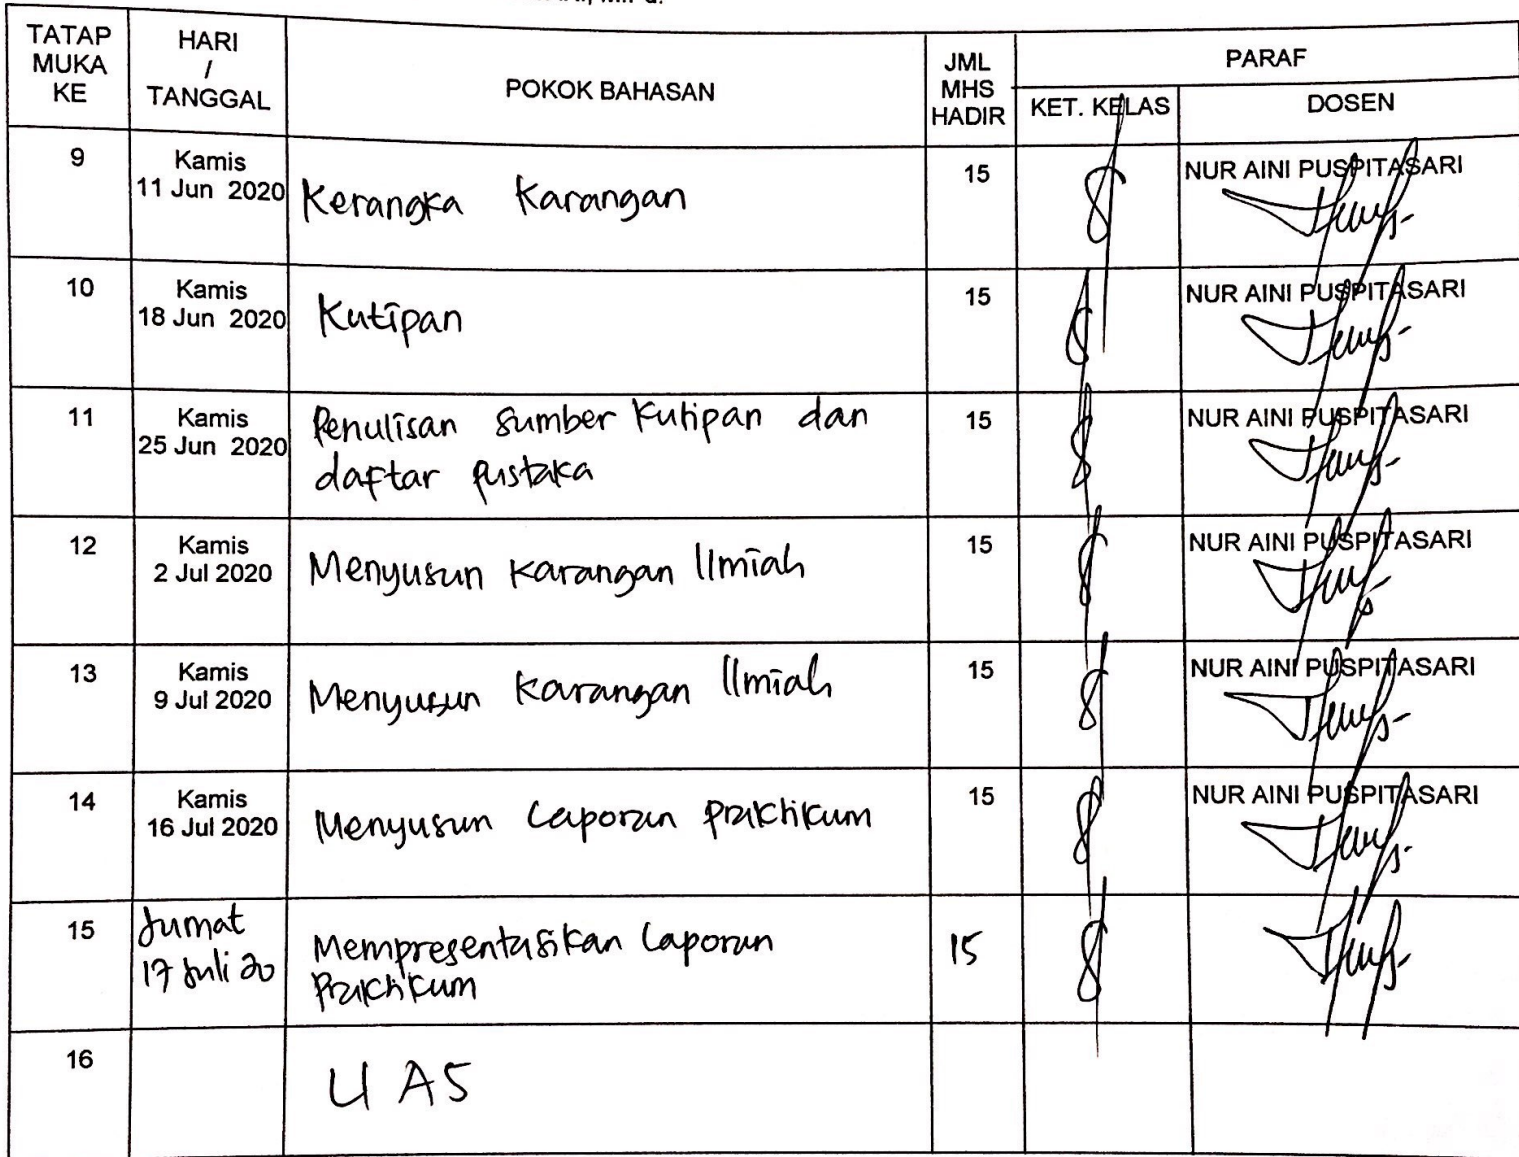 TATAP
MUKA
KE
HARI
/
TANGGAL
POKOK BAHASAN
JML
MHS
HADIR
PARAF
KET. KELAS
DOSEN
9
Kamis
11 Jun 2020
Kerangka Karangan
15
NUR AINI PUSPITASARI
10
Kamis
18 Jun 2020
Kutipan
15
NUR AINI PUSPITASARI
11
Kamis
25 Jun 2020
Penulisan Sumber Kutipan dan
daftar pustaka
15
NUR AINI PUSPITASARI
12
Kamis
2 Jul 2020
Menyusun Karangan Ilmiah
15
NUR AINI PUSPITASARI
13
Kamis
9 Jul 2020
Menyusun Karangan Ilmiah
15
NUR AINI PUSPITASARI
14
Kamis
16 Jul 2020
Menyusun Laporan Praktikum
15
NUR AINI PUSPITASARI
15
Jumat
17 Juli 20
Mempresentasikan Laporan
Praktikum
15
16
UAS